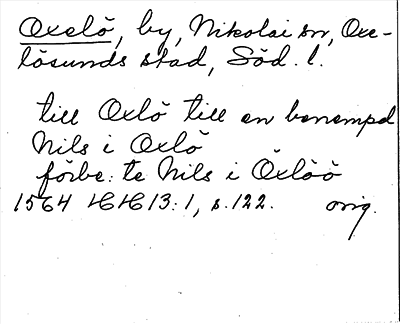 Oxelö, by, Nikolai sn, Oxe-
lösunds stad, Söd. l.
till Oxlö till en benempd
Nils i Oxlö
förbe: te Nils i Öxlöö
1564 HH 13:1, s. 122. orig.